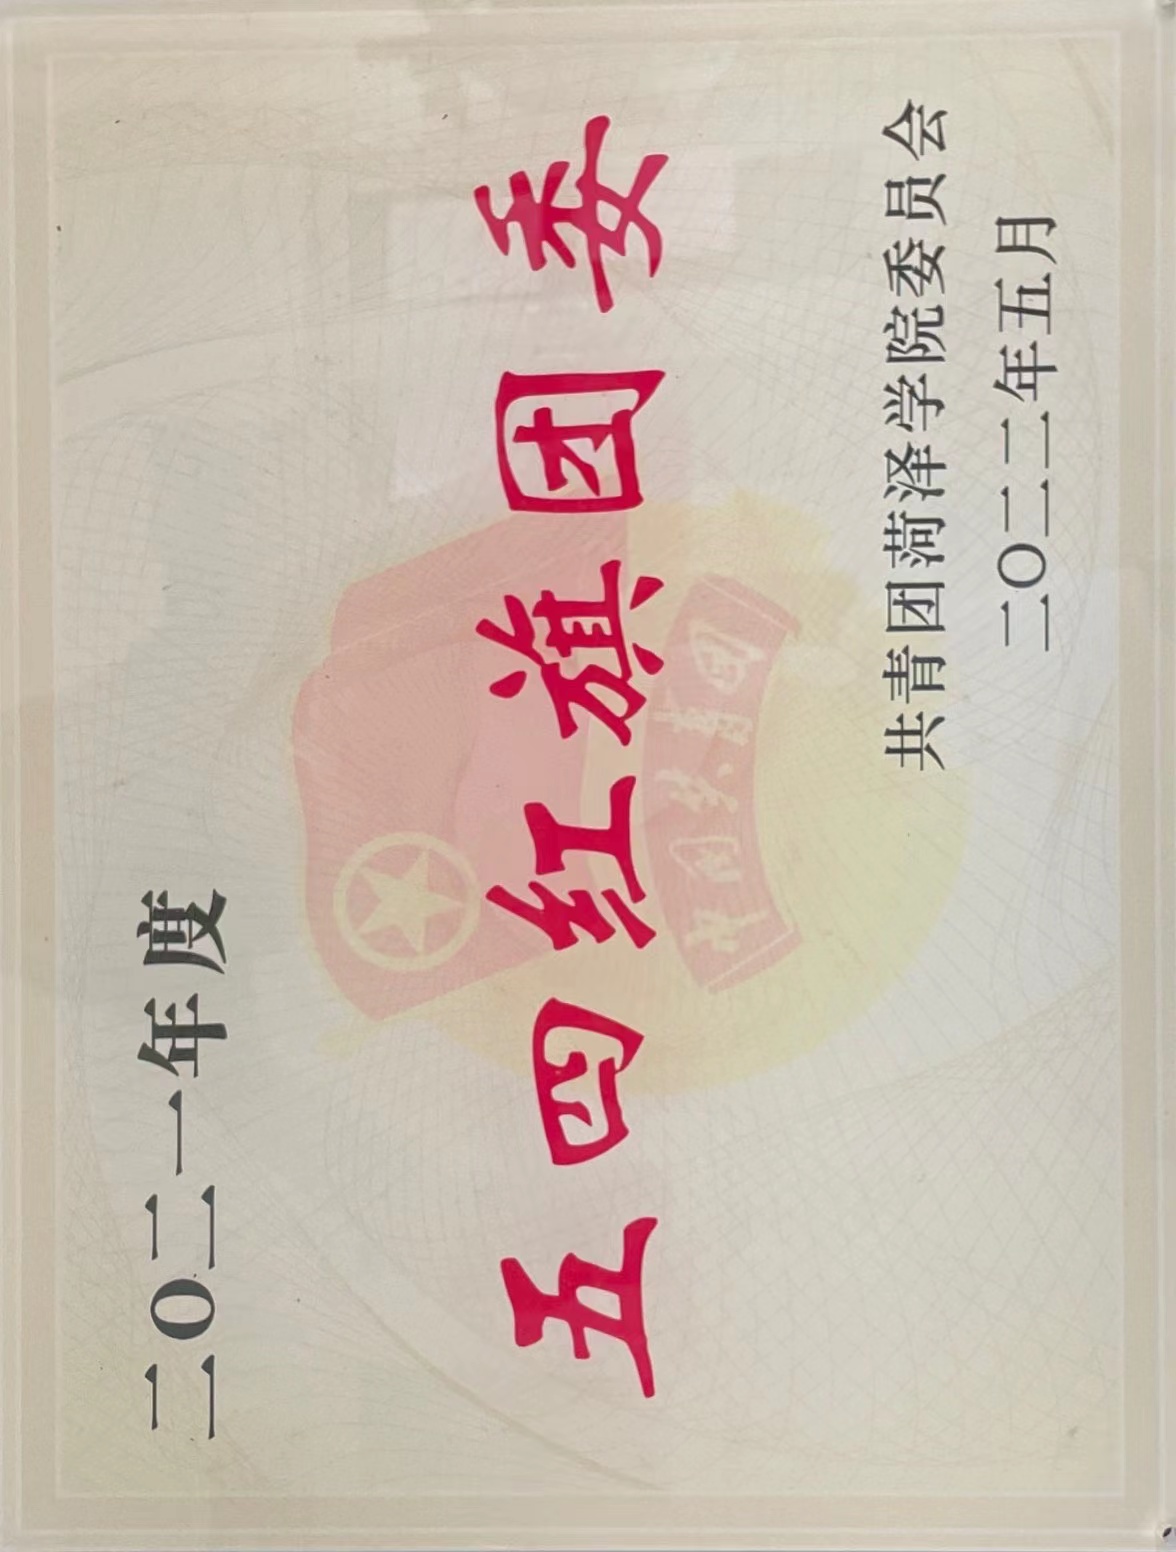 二〇二一年度
五四红旗团委
中国共青团
共青团菏泽学院委员会
二〇二二年五月